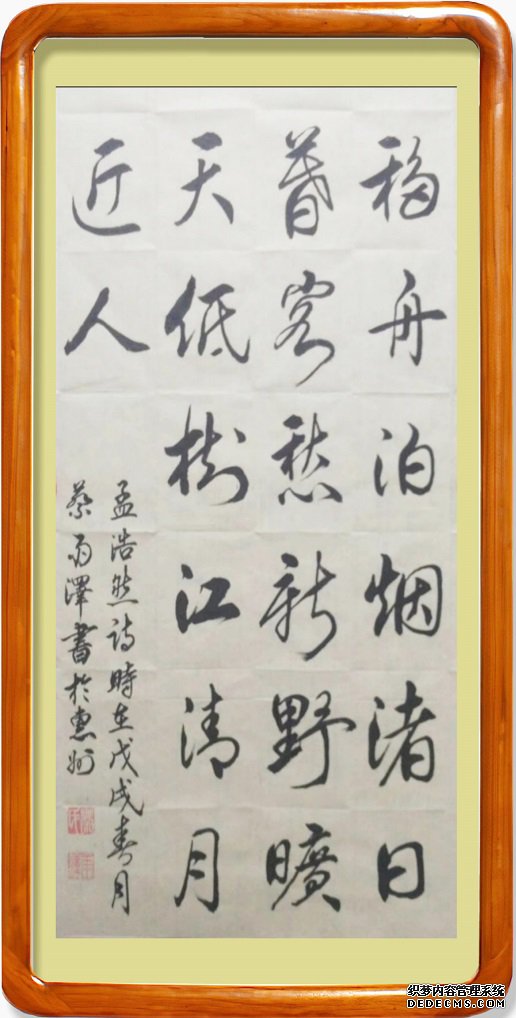 移舟泊烟渚日
暮客愁新野曠
天低樹江清月
近人
孟浩然诗時在戊戌春月
蔡雨澤書於惠州
织梦内容管理系统
DEDECMS.COM